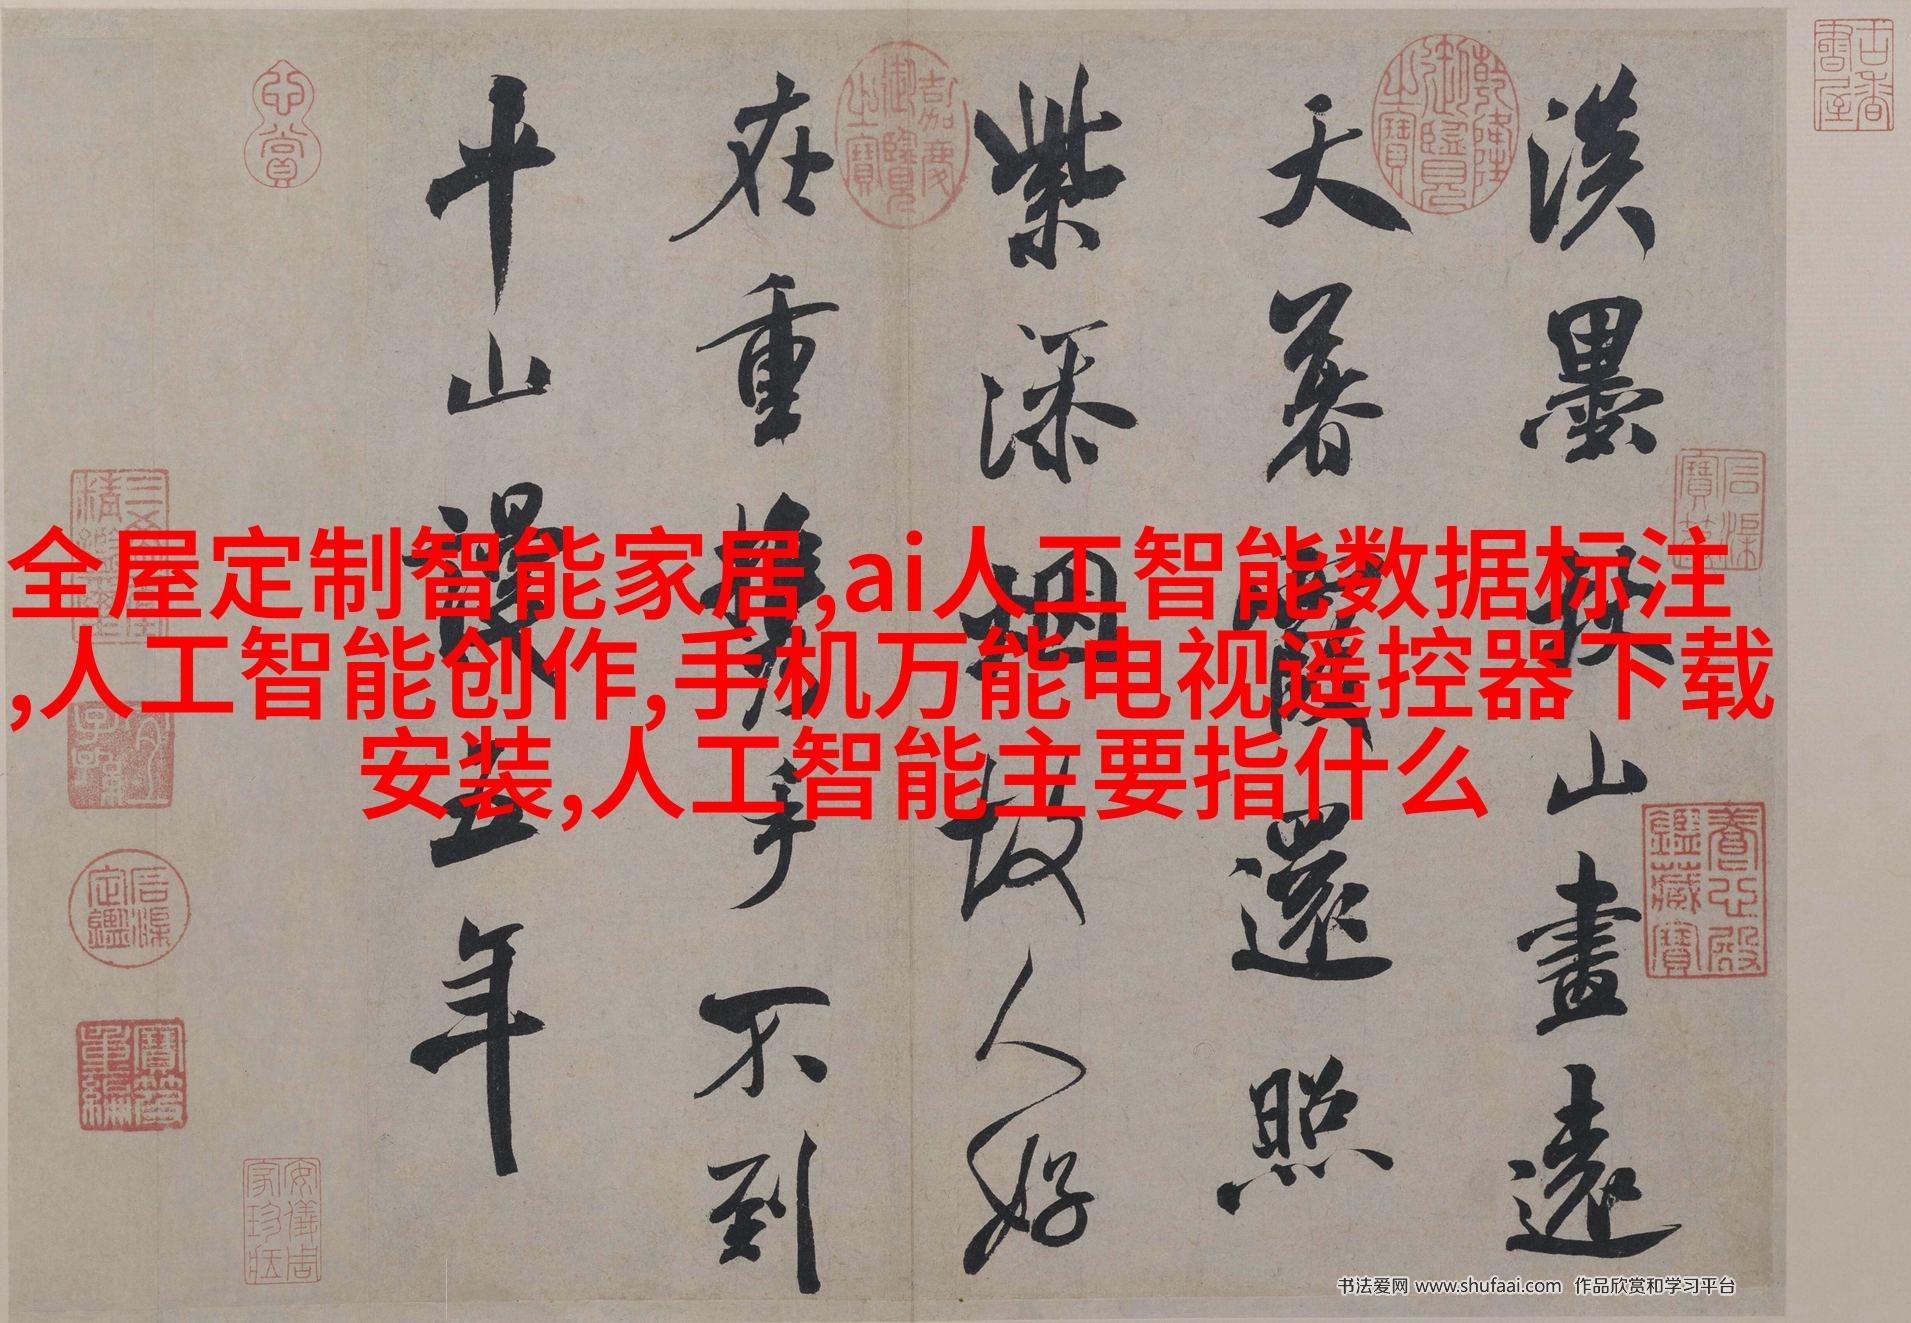 全屋定制智能家居,ai人工智能数据标注
,人工智能创作,手机万能电视遥控器下载
安装,人工智能主要指什么
淡墨秋山畫遠
天暮霞還照
紫添烟故人好
在重攜手不到
平山謾五年
古香書屋
乾隆御覽之寶
嘉慶御覽之寶
心賞
石渠寶笈
養心殿鑑藏寶
三希堂精鑑璽
宜子孫
石渠定鑑
寶笈重編
安儀周家珍藏
书法爱网 www.shufaai.com 作品欣赏和学习平台